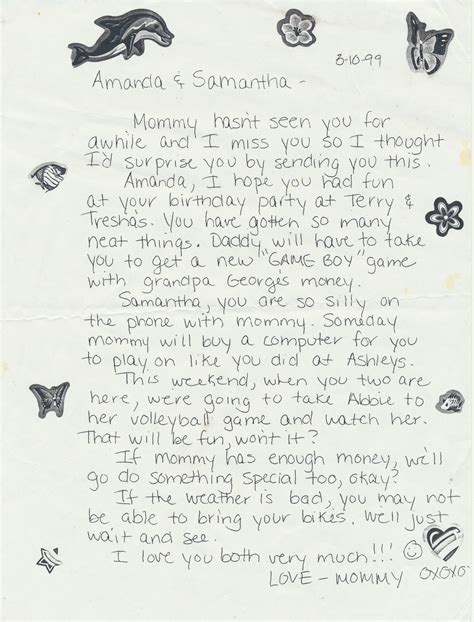 3-10-99
Amanda & Samantha -
Mommy hasn't seen you for
awhile and I miss you so I thought
I'd surprise you by sending you this.
Amanda, I hope you had fun
at your birthday party at Terry &
Tresha's. You have gotten so many
neat things. Daddy will have to take
you to get a new "GAME BOY" game
with grandpa George's money.
Samantha, you are so silly on
the phone with mommy. Someday
mommy will buy a computer for you
to play on like you did at Ashleys.
This weekend, when you two are
here, we're going to take Abbie to
her volleyball game and watch her.
That will be fun, won't it?
If mommy has enough money, we'll
go do something special too, okay?
If the weather is bad, you may not
be able to bring your bikes. We'll just
wait and see.
I love you both very much!!!
LOVE - MOMMY OXOXO